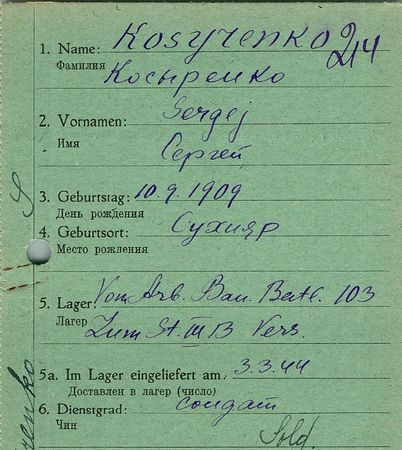 1. Name: Kosyrenko 214
Фамилия Косыренко
2. Vornamen: Sergej
Имя Сергей
3. Geburtstag: 10.9.1909
День рождения
4. Geburtsort: Сухияр
Место рождения
5. Lager: Vom Arb. Bau. Batl. 103
Лагер Zum St. III B Vers.
5a. Im Lager eingeliefert am: 3.3.44
Доставлен в лагер (число)
6. Dienstgrad: солдат
Чин Sold.